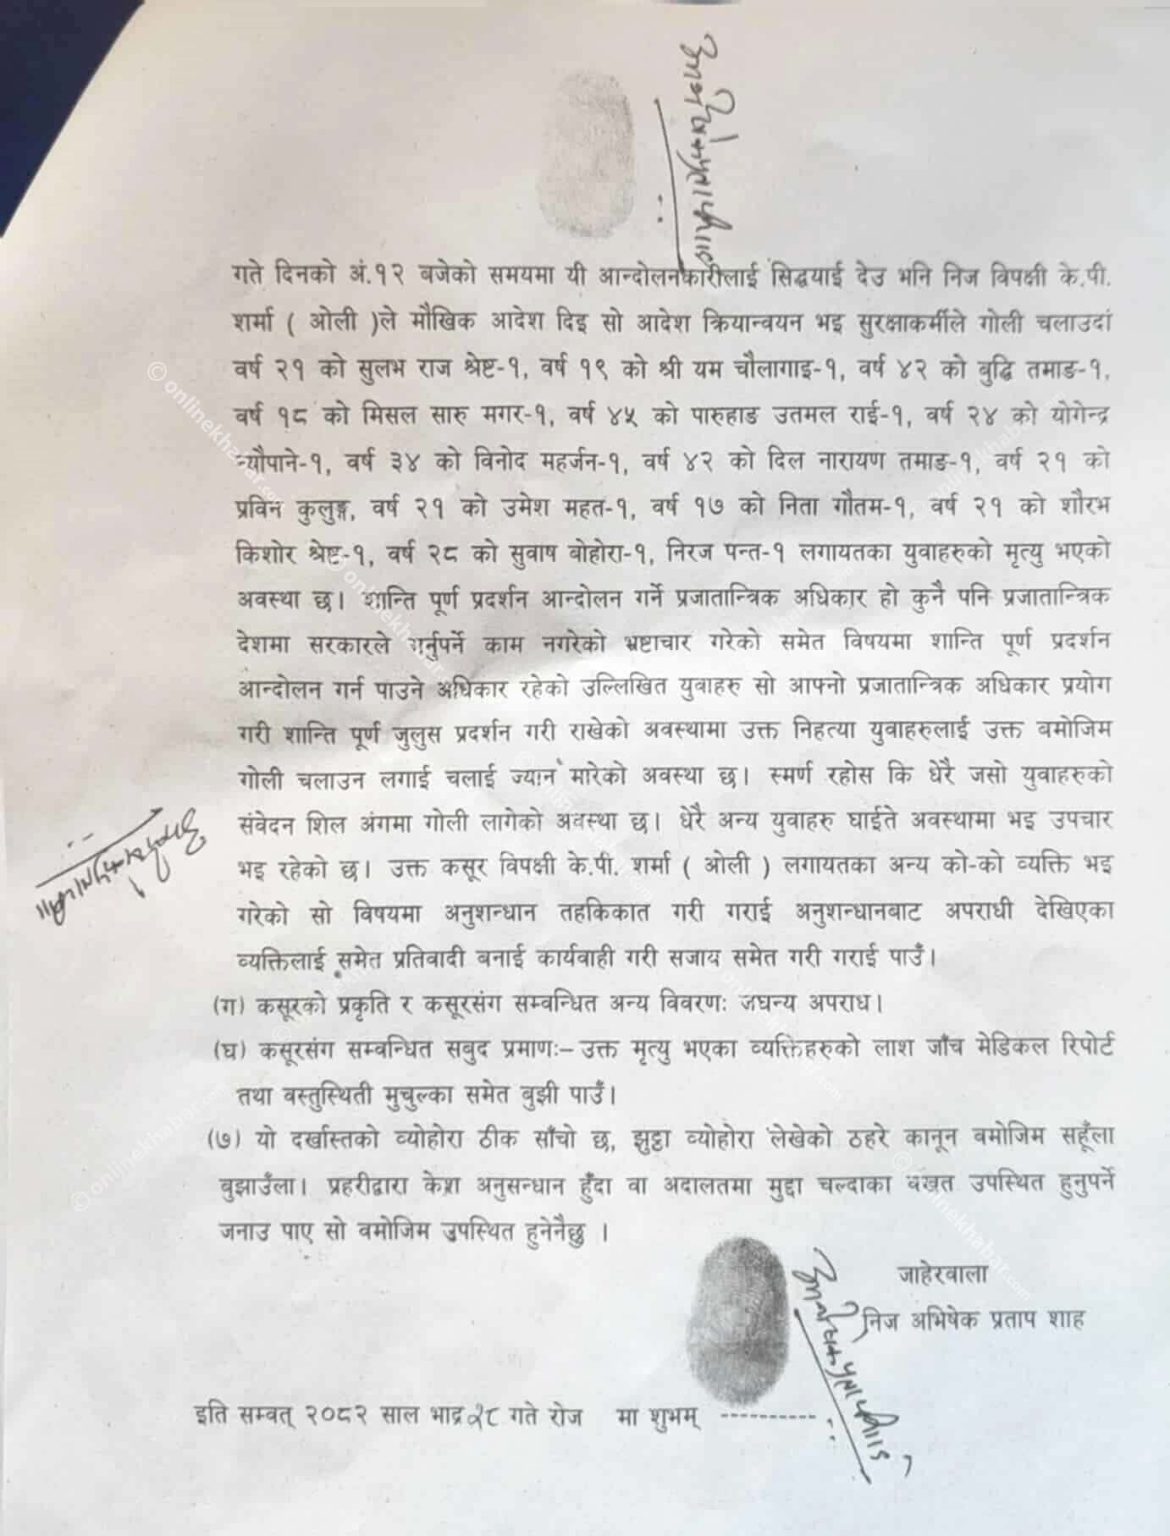 गते दिनको अं.१२ बजेको समयमा यी आन्दोलनकारीलाई सिद्धयाई देउ भनि निज विपक्षी के.पी.
शर्मा ( ओली )ले मौखिक आदेश दिइ सो आदेश क्रियान्वयन भइ सुरक्षाकर्मीले गोली चलाउदां
वर्ष २१ को सुलभ राज श्रेष्ट-१, वर्ष १९ को श्री यम चौलागाइ-१, वर्ष ४२ को बुद्धि तमाङ-१,
वर्ष १८ को मिसल सारु मगर-१, वर्ष ४५ को पारुहाङ उतमल राई-१, वर्ष २४ को योगेन्द्र
न्यौपाने-१, वर्ष ३४ को विनोद महर्जन-१, वर्ष ४२ को दिल नारायण तमाङ-१, वर्ष २१ को
प्रविन कुलुङ्ग, वर्ष २१ को उमेश महत-१, वर्ष १७ को निता गौतम-१, वर्ष २१ को शौरभ
किशोर श्रेष्ट-१, वर्ष २८ को सुवाष बोहोरा-१, निरज पन्त-१ लगायतका युवाहरुको मृत्यु भएको
अवस्था छ। शान्ति पूर्ण प्रदर्शन आन्दोलन गर्ने प्रजातान्त्रिक अधिकार हो कुनै पनि प्रजातान्त्रिक
देशमा सरकारले गर्नुपर्ने काम नगरेको भ्रष्टाचार गरेको समेत विषयमा शान्ति पूर्ण प्रदर्शन
आन्दोलन गर्न पाउने अधिकार रहेको उल्लिखित युवाहरु सो आफ्नो प्रजातान्त्रिक अधिकार प्रयोग
गरी शान्ति पूर्ण जुलुस प्रदर्शन गरी राखेको अवस्थामा उक्त निहत्या युवाहरुलाई उक्त बमोजिम
गोली चलाउन लगाई चलाई ज्यान मारेको अवस्था छ। स्मर्ण रहोस कि धेरै जसो युवाहरुको
संवेदन शिल अंगमा गोली लागेको अवस्था छ। धेरै अन्य युवाहरु घाईते अवस्थामा भइ उपचार
भइ रहेको छ। उक्त कसूर विपक्षी के.पी. शर्मा ( ओली ) लगायतका अन्य को-को व्यक्ति भइ
गरेको सो विषयमा अनुशन्धान तहकिकात गरी गराई अनुशन्धानबाट अपराधी देखिएका
व्यक्तिलाई समेत प्रतिवादी बनाई कार्यवाही गरी सजाय समेत गरी गराई पाउँ।
(ग) कसूरको प्रकृति र कसूरसंग सम्वन्धित अन्य विवरणः जघन्य अपराध।
(घ) कसूरसंग सम्वन्धित सबुद प्रमाणः– उक्त मृत्यु भएका व्यक्तिहरुको लाश जाँच मेडिकल रिपोर्ट
तथा वस्तुस्थिती मुचुल्का समेत बुझी पाउँ।
(७) यो दर्खास्तको व्योहोरा ठीक साँचो छ, झुट्ठा व्योहोरा लेखेको ठहरे कानून बमोजिम सहूँला
बुझाउँला। प्रहरीद्वारा केश अनुसन्धान हुँदा वा अदालतमा मुद्दा चल्दाका बखत उपस्थित हुनुपर्ने
जनाउ पाए सो बमोजिम उपस्थित हुनेनैछु ।
जाहेरवाला
निज अभिषेक प्रताप शाह
इति सम्वत् २०८२ साल भाद्र २८ गते रोज मा शुभम् ----------
© onlinekhabar.com